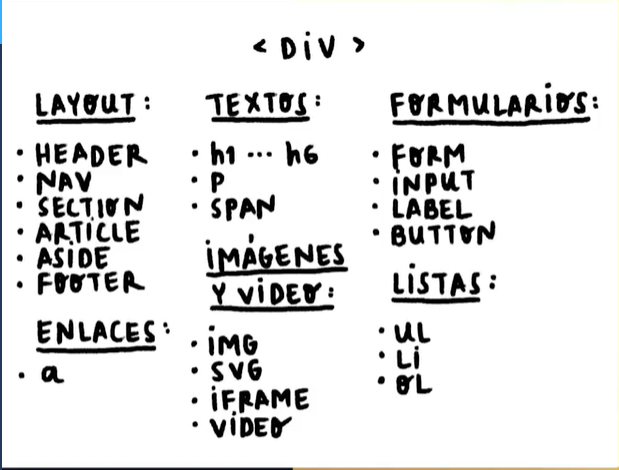 < DiV >
LAYOUT:
• HEADER
• NAV
• SECTION
• ARTiCLE
• ASiDE
• FOOTER
ENLACES:
• a
TEXTOS:
• h1 ... h6
• P
• SPAN
iMÁGENES
Y ViDEO:
• iMG
• SVG
• iFRAME
• ViDEO
FORMULARiOS:
• FORM
• iNPUT
• LABEL
• BUTTON
LiSTAS:
• UL
• Li
• OL